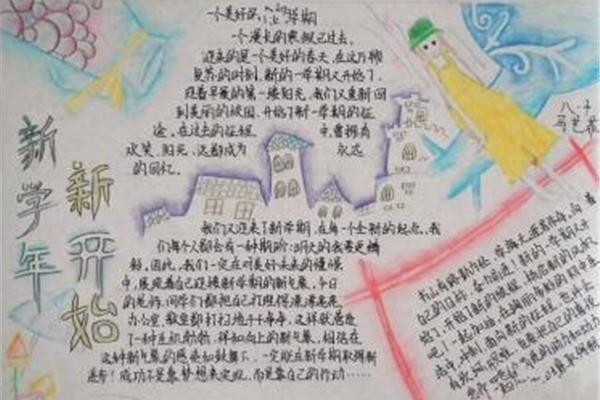 新学年
新开始
一个美好的 学期
一个漫长的寒假已过去,
迎来的是一个美好的春天,在这万物
复苏的时刻,新的一学期又开始了,
迎着早晨的第一缕阳光,我们又重新回
到美丽的校园,开始了新一学期的征
途,在过去的征程 中,曾拥有
欢笑、阳光,这都成为 永远
的回忆。
我们又迎来了新学期,在每一个全新的起点,我
们每个人都会有一种期盼:明天的我要更精
彩。因此,我们一定在对美好未来的憧憬
中,展现着自己迎接新学期的新气象,今日
的老师、同学们都把自己打理得漂漂亮亮,
办公室、教室都打扫地干干净净,这样就营造
了一种生机勃勃、祥和向上的新气象,相信在
这种新气象的感染和鼓舞下,一定能在新学期取得新
进步!成功不是靠梦想来实现,而是靠自己的行动……
八、十
书山有路勤为径,学海无涯苦作舟,向着
自己的目标,奋勇前进!新的一学期又开
始了,开始了新的
吧!一起